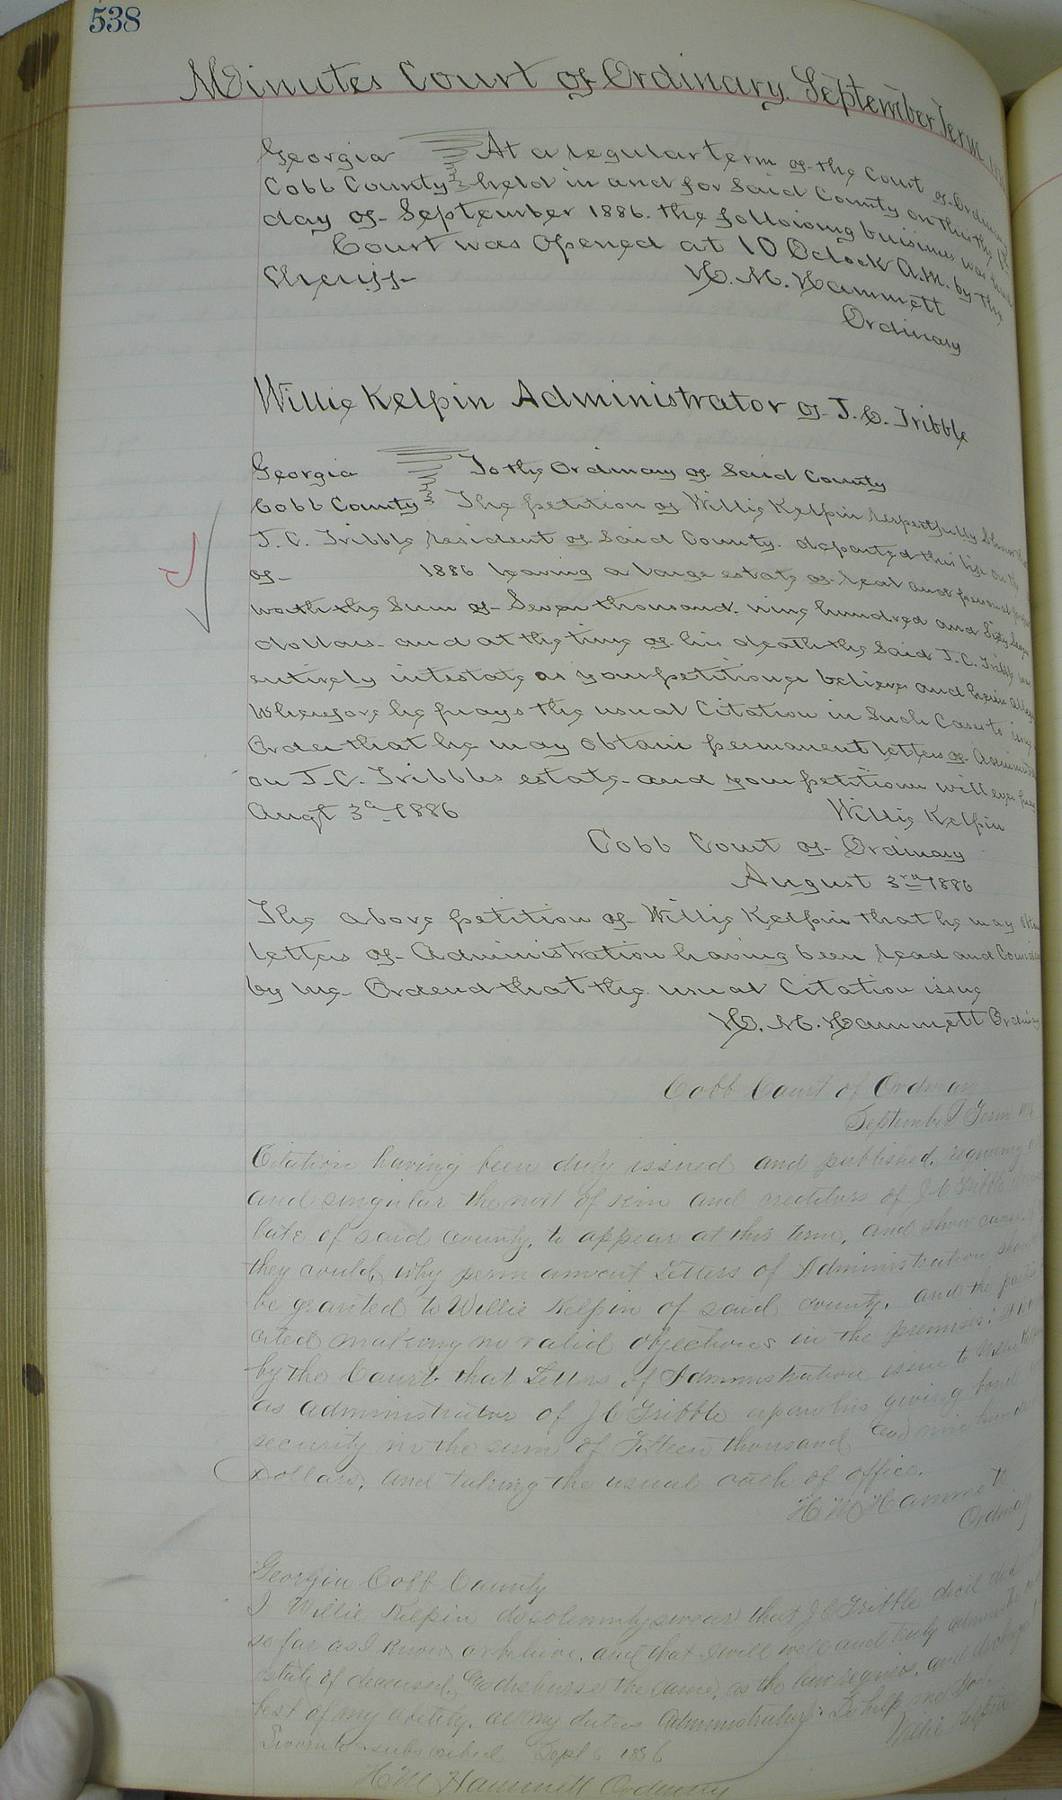 538
Minutes Court of Ordinary September Term
Georgia At a regular term of the Court of Ordinary
Cobb County held in and for Said County on this the
day of September 1886. the following buisines was
Court was Opened at 10 Oclock A.M. by the
Sheriff H. M. Hammett
Ordinary
Willie Kelpin Administrator of J. C. Tribble
Georgia To the Ordinary of Said County
Cobb County The petition of Willie Kelpin respectfully Shows that
J. C. Tribble resident of Said County. departed this life on the
of 1886 leaving a large estate of real and personal
worth the Sum of Seven thousand. nine hundred and Sixty
dollars. and at the time of his death the Said J. C. Tribble was
entirely intestate as your petitioner believes and herein alleges
Wherefore he prays the usual Citation in Such Cases to issue
Order that he may obtain permanent letters of
on J. C. Tribbles estate. and your petitioner will ever pray
Augt 3d 1886 Willie Kelpin
Cobb Court of Ordinary
August 3rd 1886
The above petition of Willie Kelpin that he may
letters of Administration having been read and
by me Ordered that the usual Citation issue
H. M. Hammett Ordinary
Cobb Court of Ordinary
September Term
Citation having been duly issued and published, requiring
and singular the next of kin and creditors of J C Tribble
late of said county, to appear at this term, and show cause
they could, why permanent Letters of Administration should
be granted to Willie Kelpin of said county, and the
cited making no valid objections in the premises.
by the Court that Letters of Administration issue to
as administrator of J C Tribble upon his giving bond
security in the sum of Fifteen thousand and nine hundred
Dollars, and taking the usual oath of office.
H M Hammett
Ordinary
Georgia Cobb County
I Willie Kelpin do solemnly swear that J C Tribble died
so far as I know or believe, and that I will well and truly
state of deceased, disburse the same, as the law requires, and
best of my ability, all my duties Administrator So help me God.
Sworn to & subscribed Sept 6 1886 Willie Kelpin
H M Hammett Ordinary